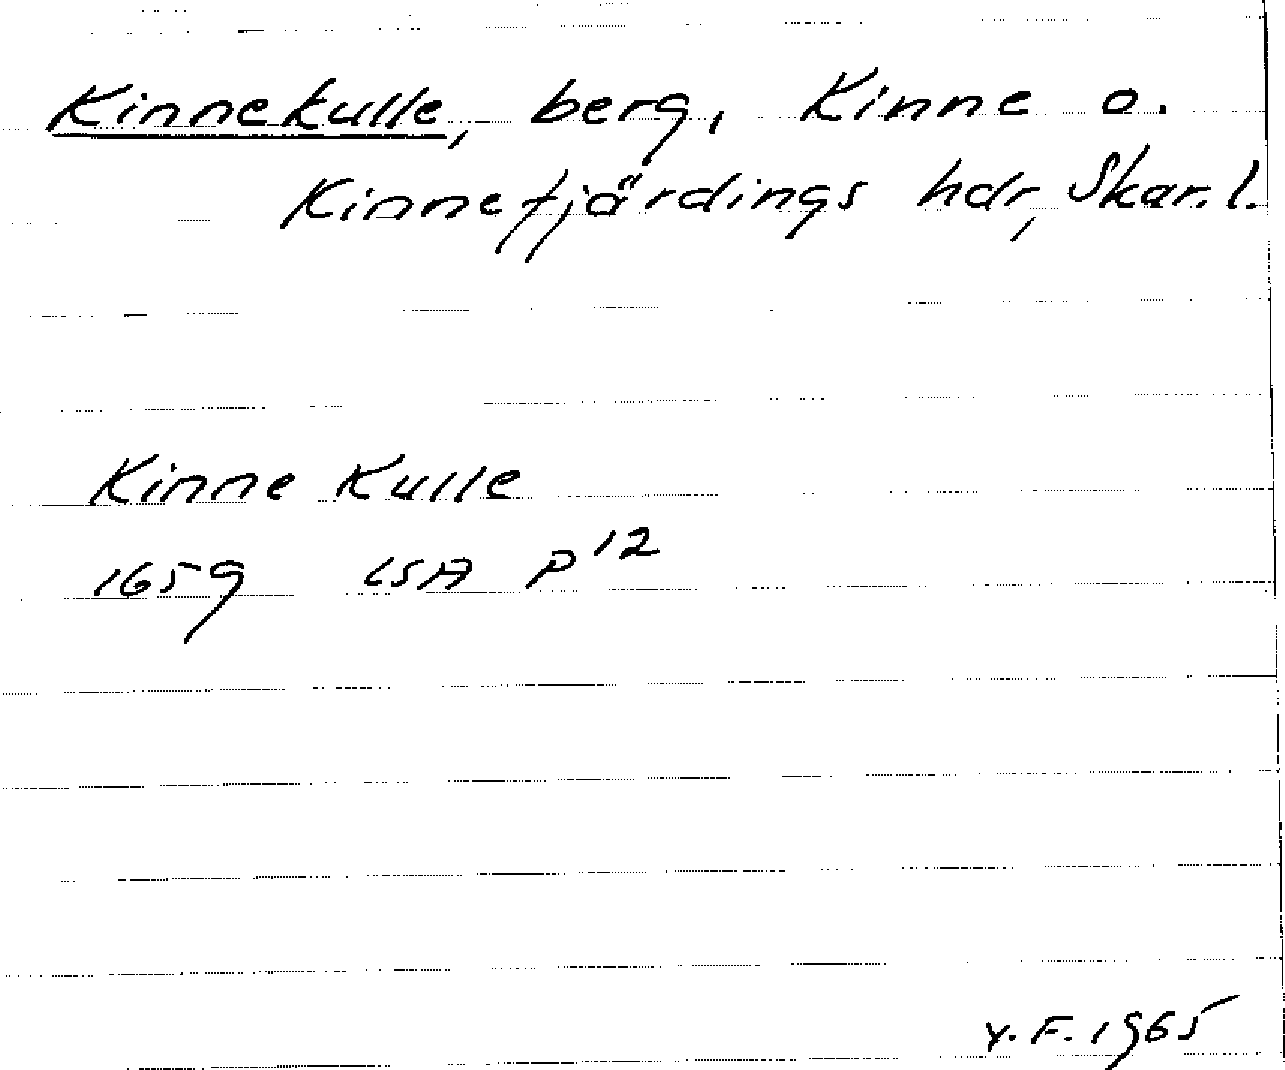 Kinnekulle, berg, Kinne o.
Kinnefjärdings hdr, Skar. l.
Kinne Kulle
1659 LSA P 12
Y.F. 1965